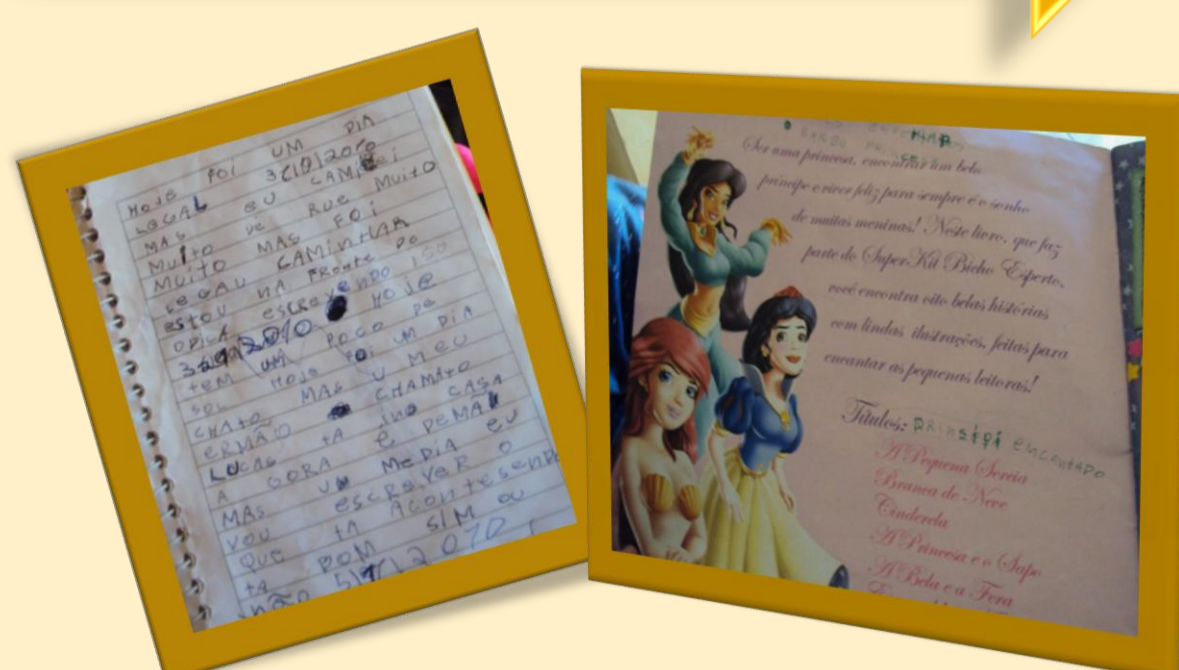 HOJE FOI UM DIA
LEGAL
MAS EU
MUITO MUITO
MUITO MAS FOI
LEGAU CAMINHAR
ESTOU NA FRONTE DO
ESCREVENDO ISO
HOJE
TEM UM POCO DE
SOL HOJE FOI UM DIA
CHATO MAS U MEU
ERMÃO CHAMATO
LUCAS TA INO CASA
A GORA E
MAS MEDIA EU
VOU ESCREVER O
QUE TA ACONTESENDO
TA BOM SIM OU
NÃO
Ser uma princesa, encontrar um belo
príncipe e viver feliz para sempre é o sonho
de muitas meninas! Neste livro, que faz
parte do Super Kit Bicho Esperto,
você encontra oito belas histórias
com lindas ilustrações, feitas para
encantar as pequenas leitoras!
Títulos: PRINSIPI ENCENTADO
A Pequena Sereia
Branca de Neve
Cinderela
A Princesa e o Sapo
A Bela e a Fera